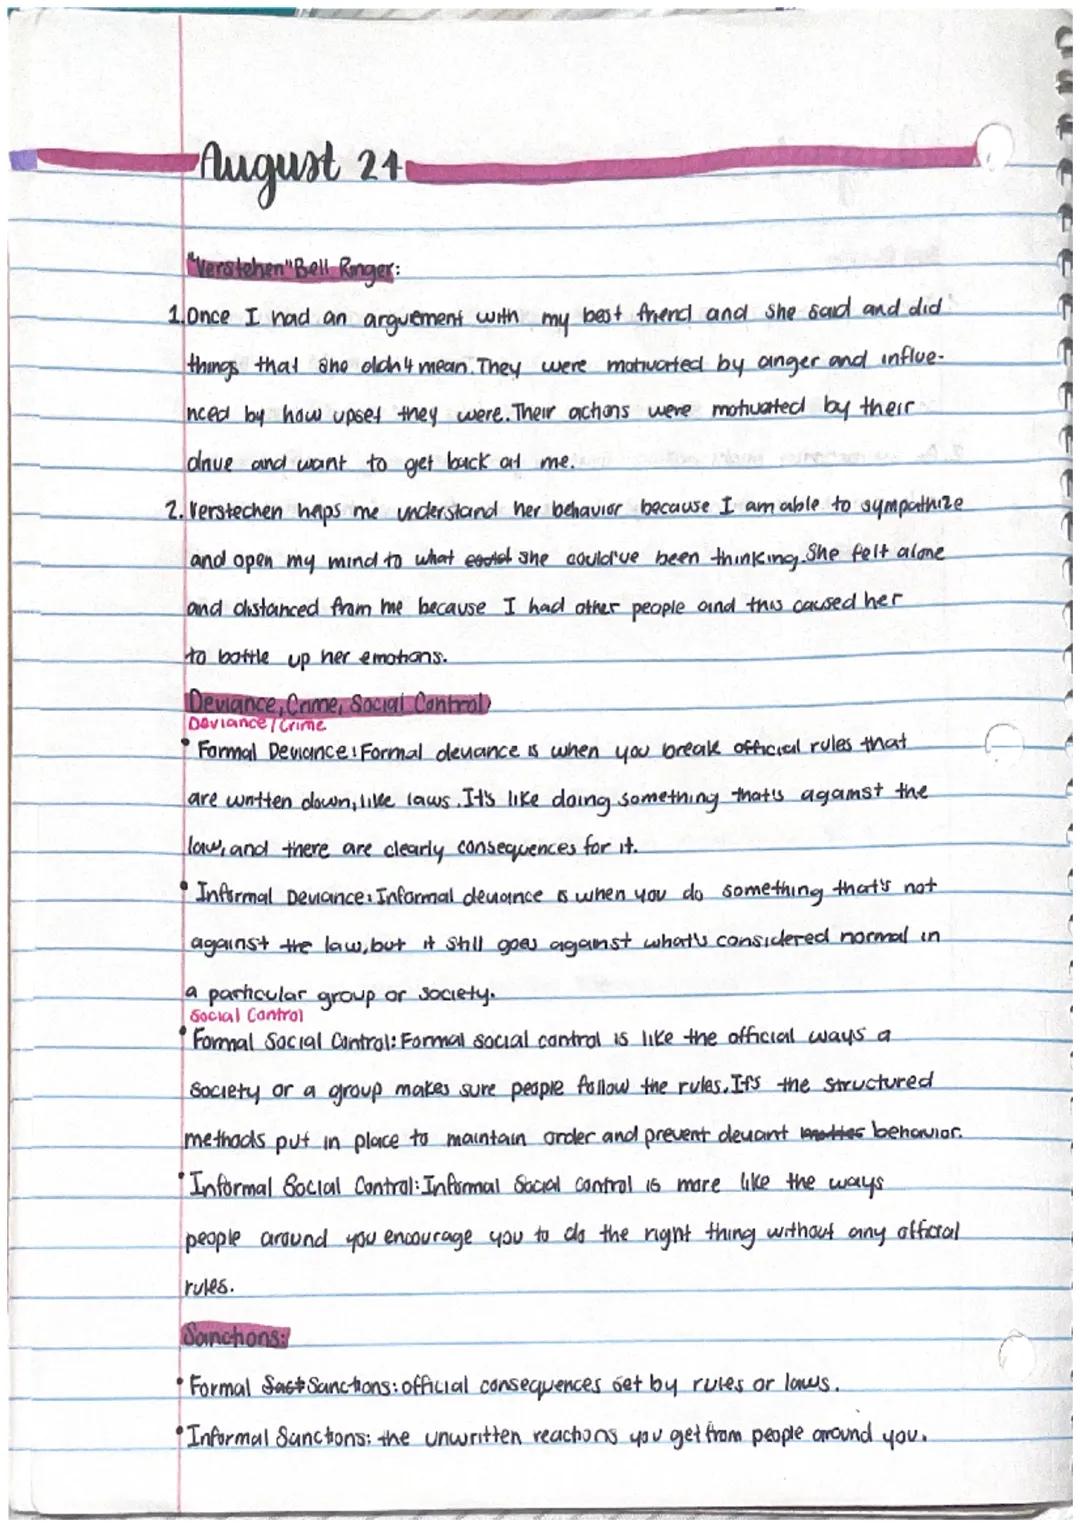 August 24
"Verstehen" Bell Ringer:
1. Once I had an arguement with my best friend and she said and did
things that she didn't mean. They were motivated by anger and influe-
nced by how upset they were. Their actions were motivated by their
drive and want to get back at me.
2. Verstechen helps me understand her behavior because I am able to sympathize
and open my mind to what could she could've been thinking. She felt alone
and distanced from me because I had other people and this caused her
to bottle up her emotions.
Deviance, Crime, Social Control
Deviance/Crime
• Formal Deviance: Formal deviance is when you break official rules that
are written down, like laws. It's like doing something that's against the
law, and there are clearly consequences for it.
• Informal Deviance: Informal deviance is when you do something that's not
against the law, but it still goes against what's considered normal in
a particular group or society.
Social Control
• Formal Social Control: Formal social control is like the official ways a
society or a group makes sure people follow the rules. It's the structured
methods put in place to maintain order and prevent deviant behavior.
• Informal Social Control: Informal Social control is more like the ways
people around you encourage you to do the right thing without any official
rules.
Sanctions:
• Formal Sact Sanctions: official consequences set by rules or laws.
• Informal Sanctions: the unwritten reactions you get from people around you.